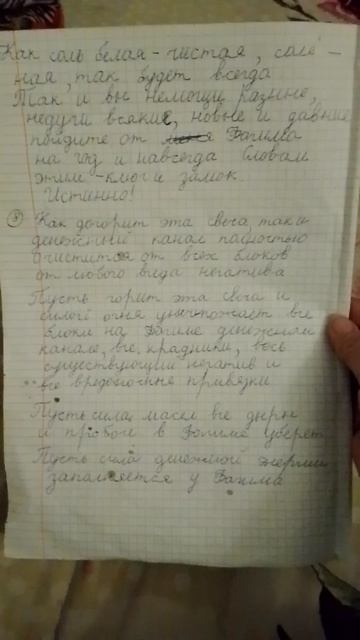 Как соль белая - чистая, солё-
ная, так будет всегда
Так и вы немощи разные,
недуги всякие, новые и давние
пойдите от Вагима
на год и навсегда Словам
этим - ключ и замок.
Истинно!
③ Как догорит эта свеча, так и
денежный канал полностью
очистится от всех блоков
от любого вида негатива
Пусть горит эта свеча и
силой огня уничтожает все
блоки на Вагиме денежном
канале, все крадники, весь
существующий негатив и
все вредоносные привязки
Пусть сила масел все дыры
и пробои в Вагиме уберет
Пусть сила денежной энергии
заполняется у Вагима